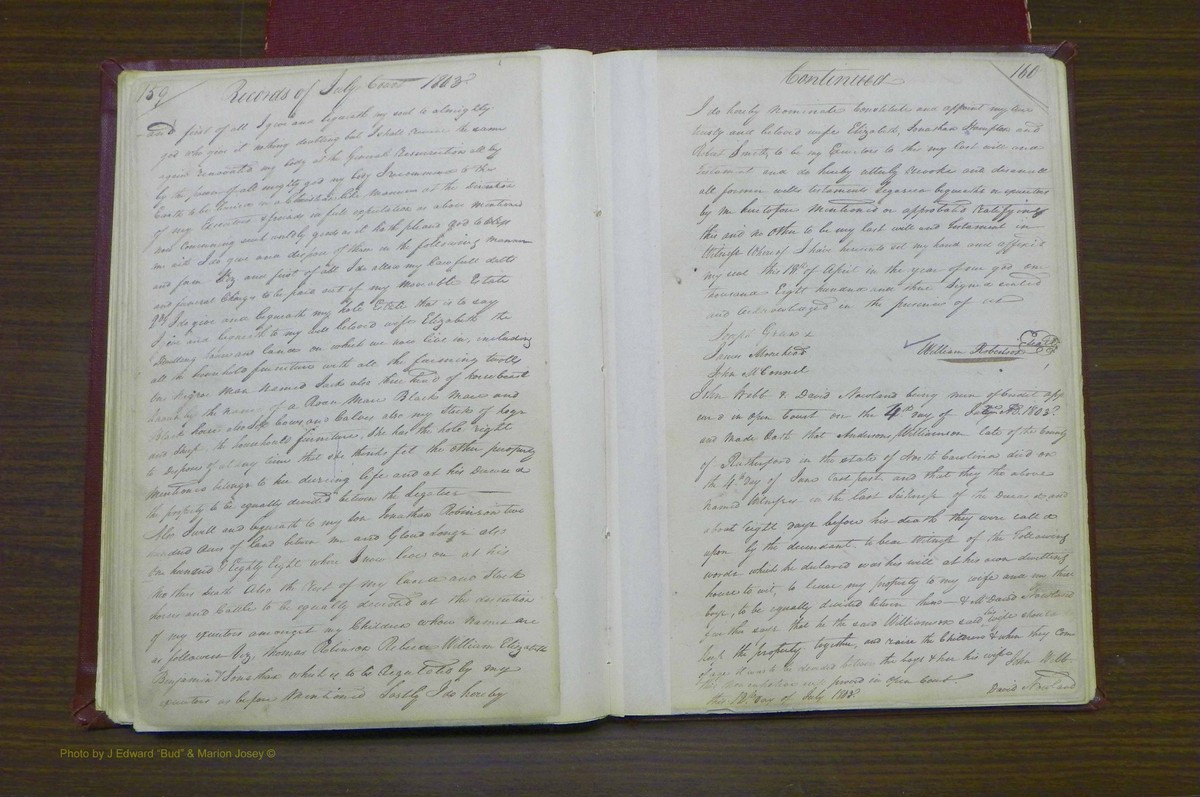 159 Records of July Court 1803
and first of all I give and bequeath my soul to almighty
god who give it nothing doubting but I shall receive the same
again my body at the General Resurrection all by
by the power of all mighty god my body I recommend to the
Earth to be buried in a Christian like manner at the
of my Executors & friends in full expectation as above mentioned
now concerning such worldly goods as it hath pleased god to bless
me with I do give and dispose of them in the following manner
and form Viz and first of all I do allow my lawfull debts
and funeral Charges to be paid out of my moveable Estate
I do give and bequeath my hole Estate that is to say
I give and bequeath to my well beloved wife Elizabeth the
Dwelling house and land on which we now live in, including
all the household furniture with all the farming tools
One Negro Man Named Jack also three head of horse beast
known by the name of a Roan Mare Black Mare and
Black horse also Cows and Calves also my Stock of hogs
and Sheep the household furniture, she has the hole right
to dispose of at any time that she thinks fit the other property
mentioned belongs to her during life and at her Decease
the property to be equally divided between the legatees
Also I will and bequeath to my son Jonathan Robinson two
hundred acres of land between me and
One hundred & Eighty Eight where I now lives on at his
Mothers death Also the Rest of my lands and Stock
horses and Cattle to be equally divided at the discretion
of my executors amongst my Children whose Names are
as followes Viz, Thomas Robinson Rebecca William Elizabeth
Benjamin Jonathan which is to be Regulated by my
executors as before Mentioned Lastly I do hereby
Continued 160
I do hereby Nominate Constitute and appoint my
trusty and beloved wife Elizabeth, Jonathan Hampton and
Robert Smith, to be my Executors to this my last will and
testament and do hereby utterly revoke and disanull
all former wills testaments legacies bequeaths or executors
by me heretofore Mentioned or approbated ratifying
this and no Other to be my last will and testament in
Witness Whereof I have hereunto set my hand and affixed
my seal this 18th of April in the year of our god one
thousand Eight hundred and three Signed sealed
and acknowledged in the presence of us
Joseph
James
John McConnel
William Robertson
John Webb & David Nowland being men of Credit app
eared in Open Court on the 4th day of July AD. 1803
and Made Oath that Anderson Williamson late of the County
of Rutherford in the state of North Carolina died on
the 4th Day of June last past and that they the above
named Witnesses in the last Sickness of the Deceased and
about Eight days before his death they were called
upon by the decendant to bear Witness of the following
words which he declared was his will at his own dwelling
house to wit, to leave my property to my wife and my three
boys, to be equally divided between them & David Nowland
further says that he the said Williamson said his wife should
keep the property together, and raise the Children & when they come
of age it was to be divided between the boys & her his wife John Webb
this proved in open Court
this 12th Day of July 1803
David Nowland
Photo by J Edward "Bud" & Marion Josey ©